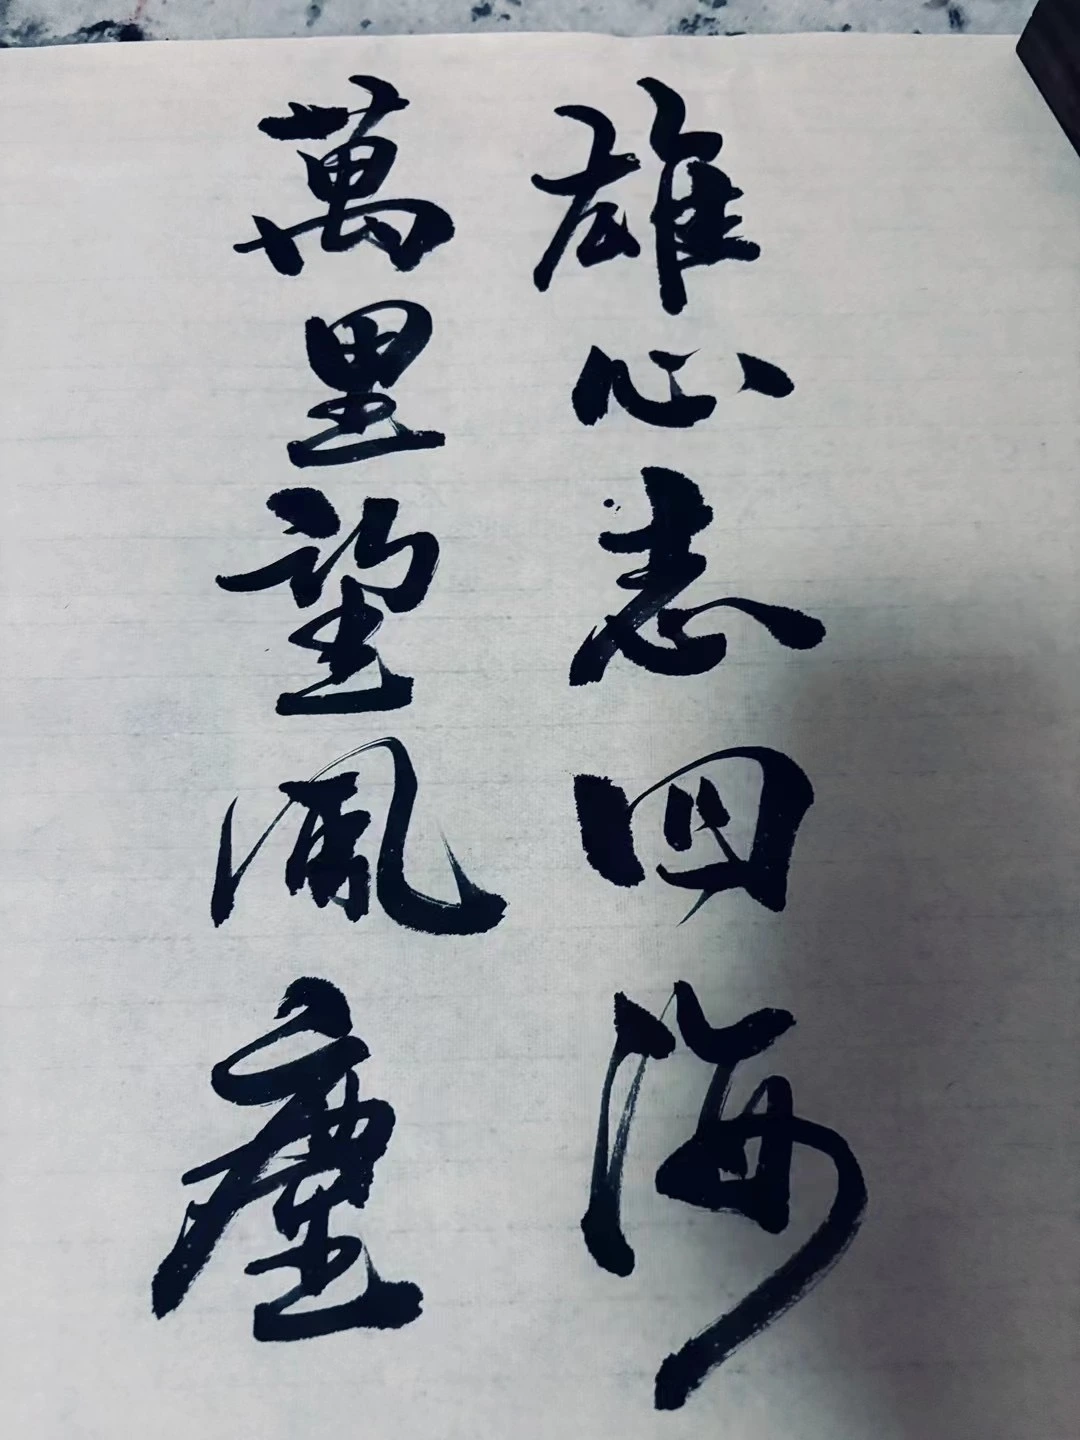 雄心志四海
萬里望風塵